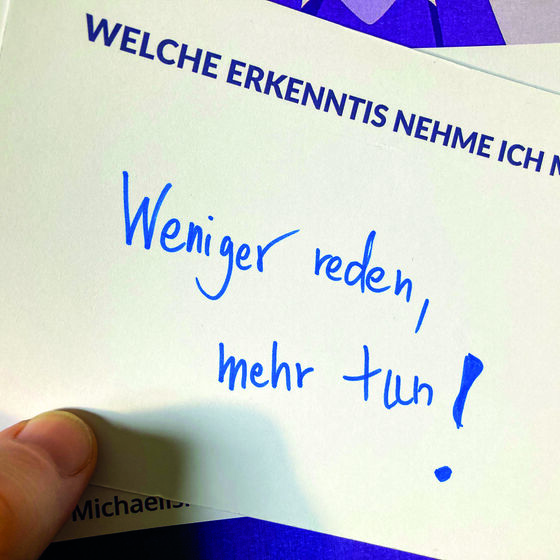 WELCHE ERKENNTIS NEHME ICH
Weniger reden,
mehr tun!